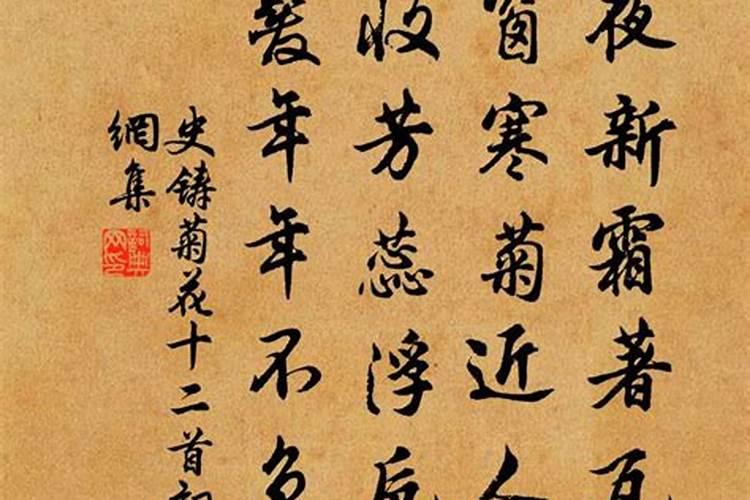 夜新霜著瓦
窗寒菊近人
收芳蕊浮
髮年年不
史鑄菊花十二首詞
網集